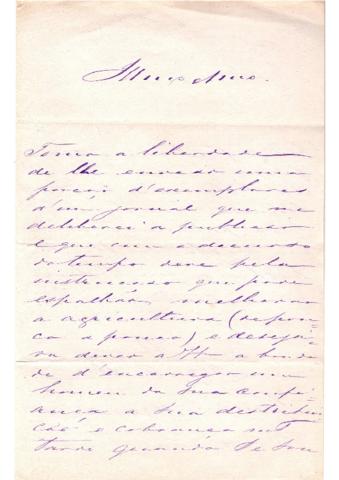 Illmo Amo.
Tomo a liberdade
de lhe enviar uma
porção d'exemplares
d'um jornal que me
deliberei a publicar
e que com o decurso
do tempo deve pela
instrucção que pode
espalhar, melhorar
a agricultura (de pou-
co a pouco) e deseja-
va dever a V. a bonda-
de d'encarregar um
homem da sua confi-
ança a sua destribui-
ção e cobrança
tarde quando se